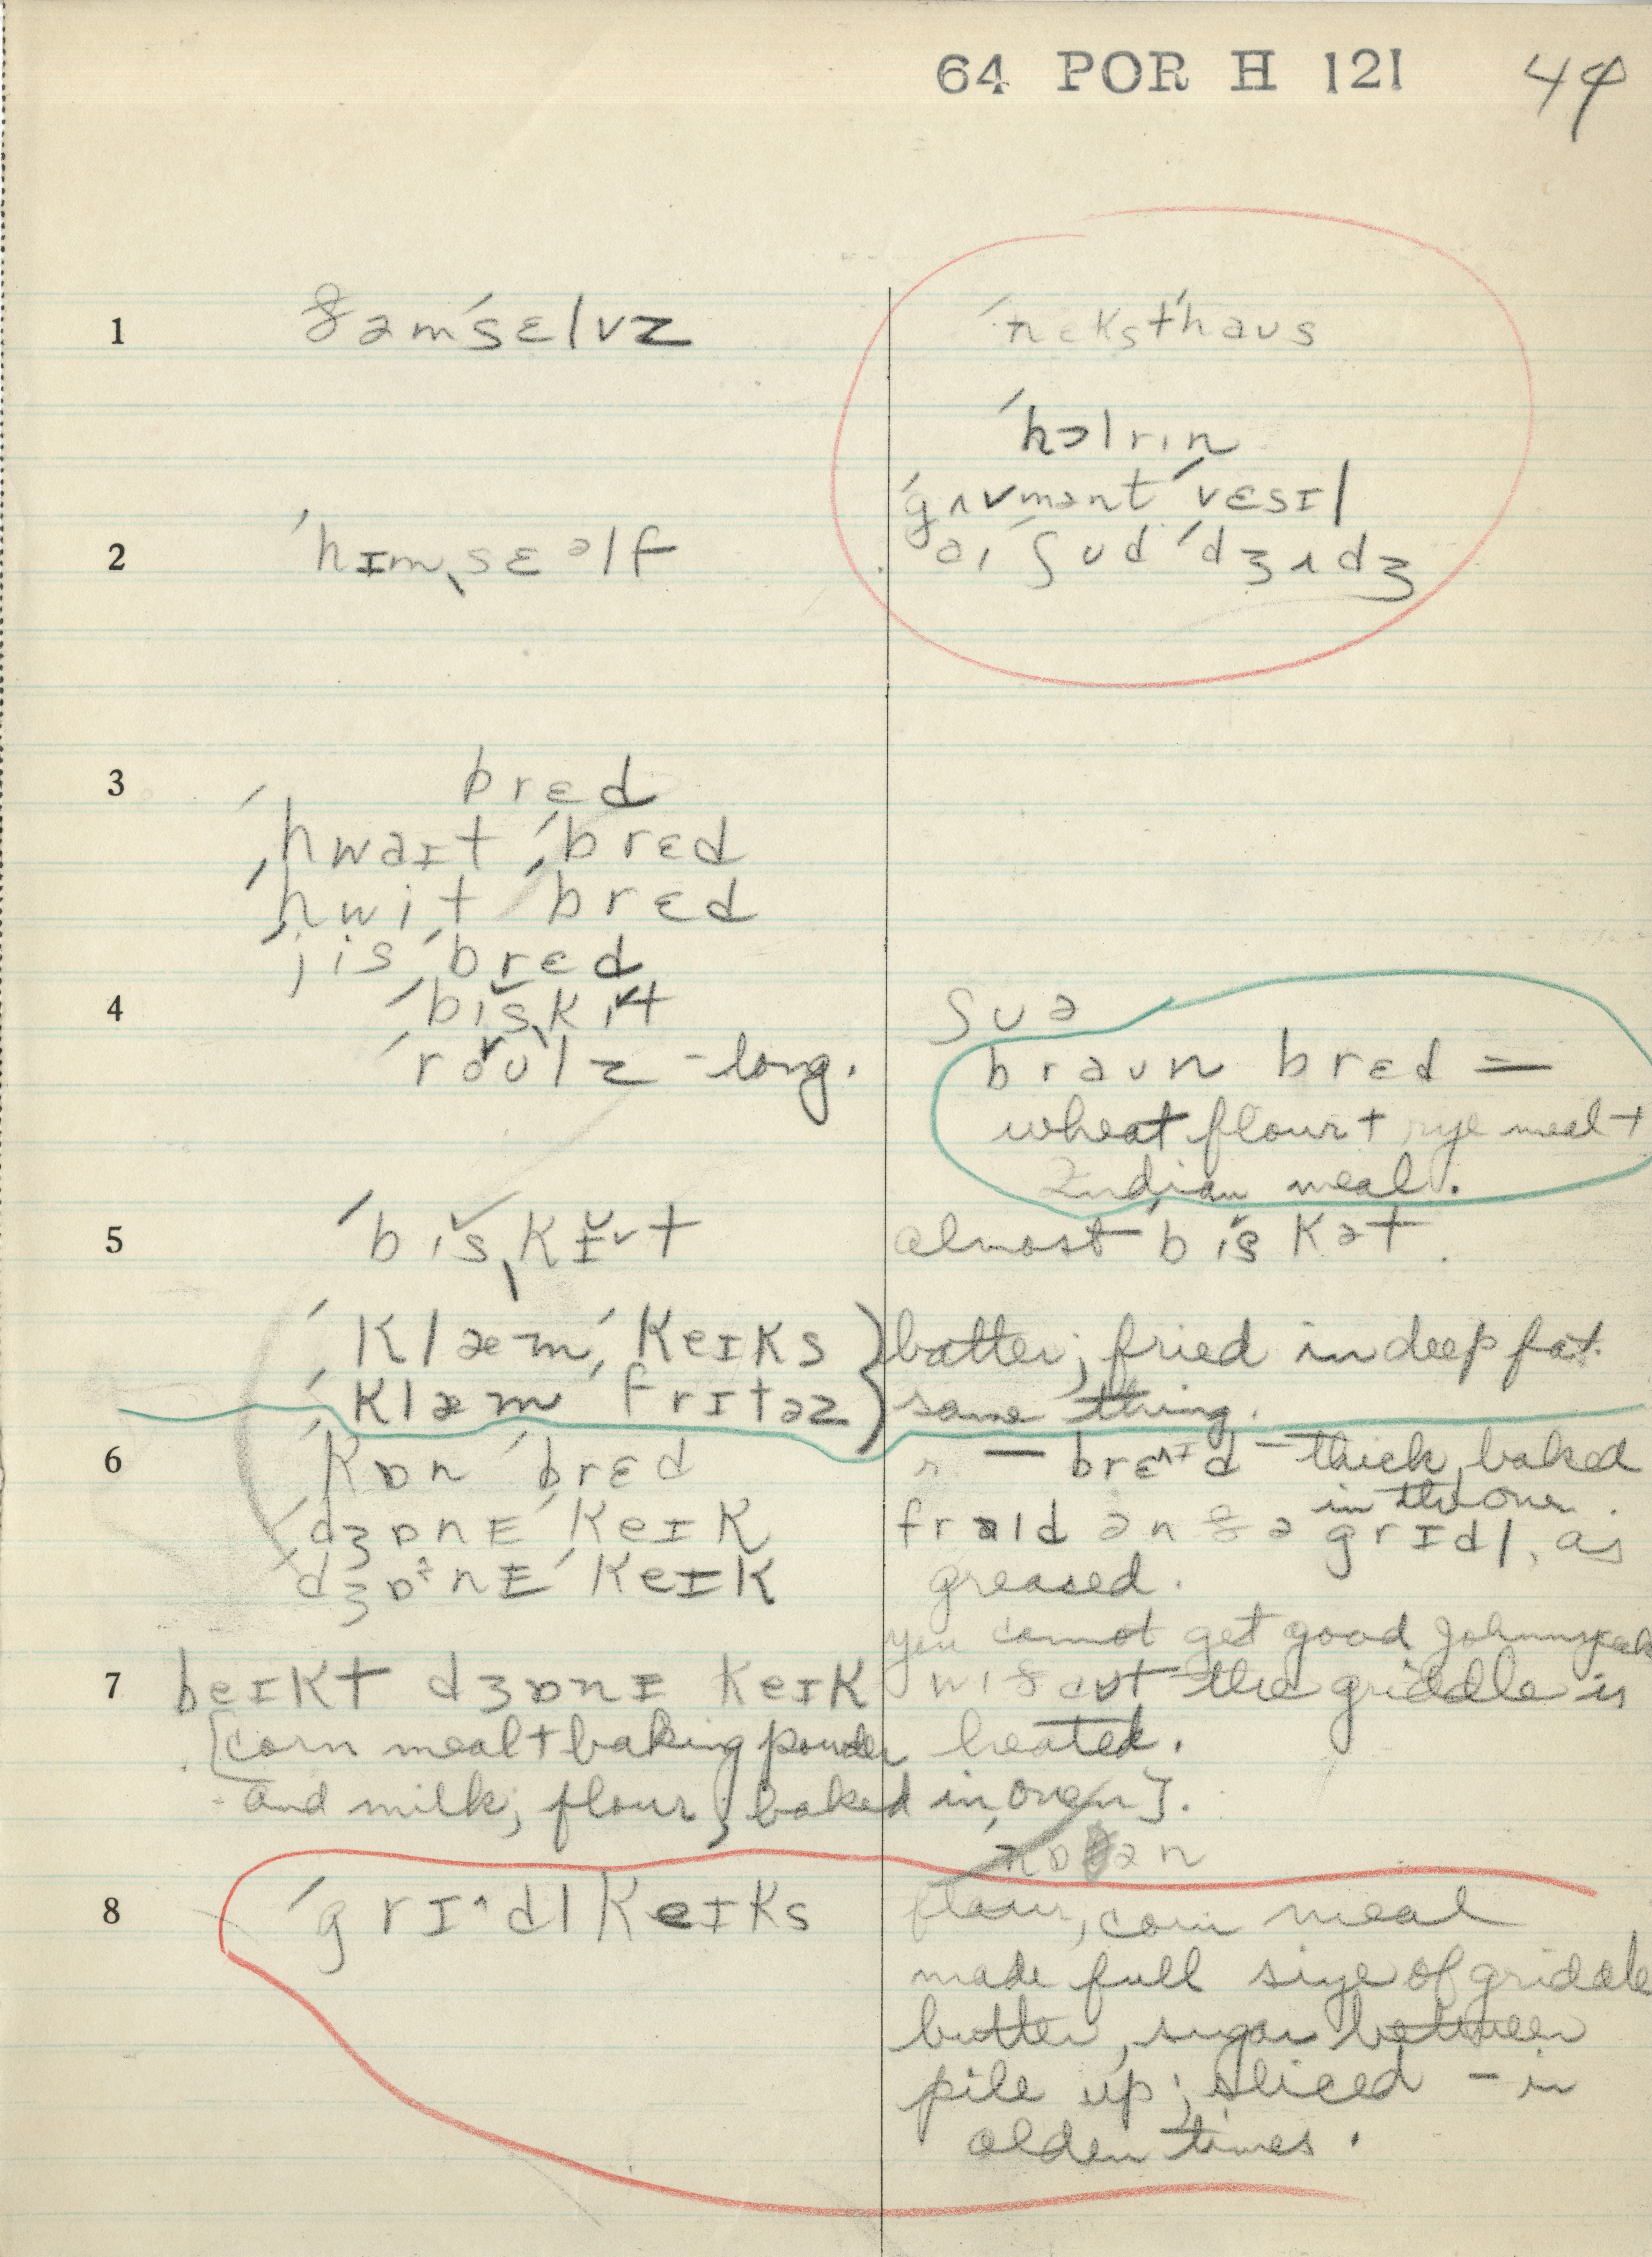 64 POR H 121 44
1 ðəmˈsɛlvz ˈnɛkstˈhaʊs
ˈhɔlrɪn
ˈgʌvmənt ˈvɛsɪl
2 ˈhɪmˌsɛəlf aɪ ʃʊd ˈdʒʌdʒ
3 brɛd
ˈhwaɪt ˈbrɛd
ˈhwit ˈbrɛd
ˈjis ˈbrɛd
4 ˈbɪsˌkɪt ʃʊə
ˈroʊlz - long. braʊn brɛd =
wheat flour + rye meal +
Indian meal.
5 ˈbɪsˌkɪt almost ˈbɪskət.
ˈklæm ˈkeɪks } batter; fried in deep fat.
ˈklæm ˈfrɪtəz } same thing.
6 ˈkɒn ˈbrɛd — brɛᴧɪd - thick, baked
in the oven.
ˈdʒɒnɪ ˈkeɪk fraɪd ən ðə grɪdl, as
ˈdʒɒˑnɪ ˈkeɪk greased.
you cannot get good Johnnycake
7 beɪkt dʒɒnɪ keɪk wɪðaʊt the griddle is
[corn meal + baking powder heated.
and milk; flour; baked in oven].
8 ˈgrɪ^dlkeɪks flour, corn meal
made full size of griddle
butter, sugar between
pile up; sliced - in
olden times.